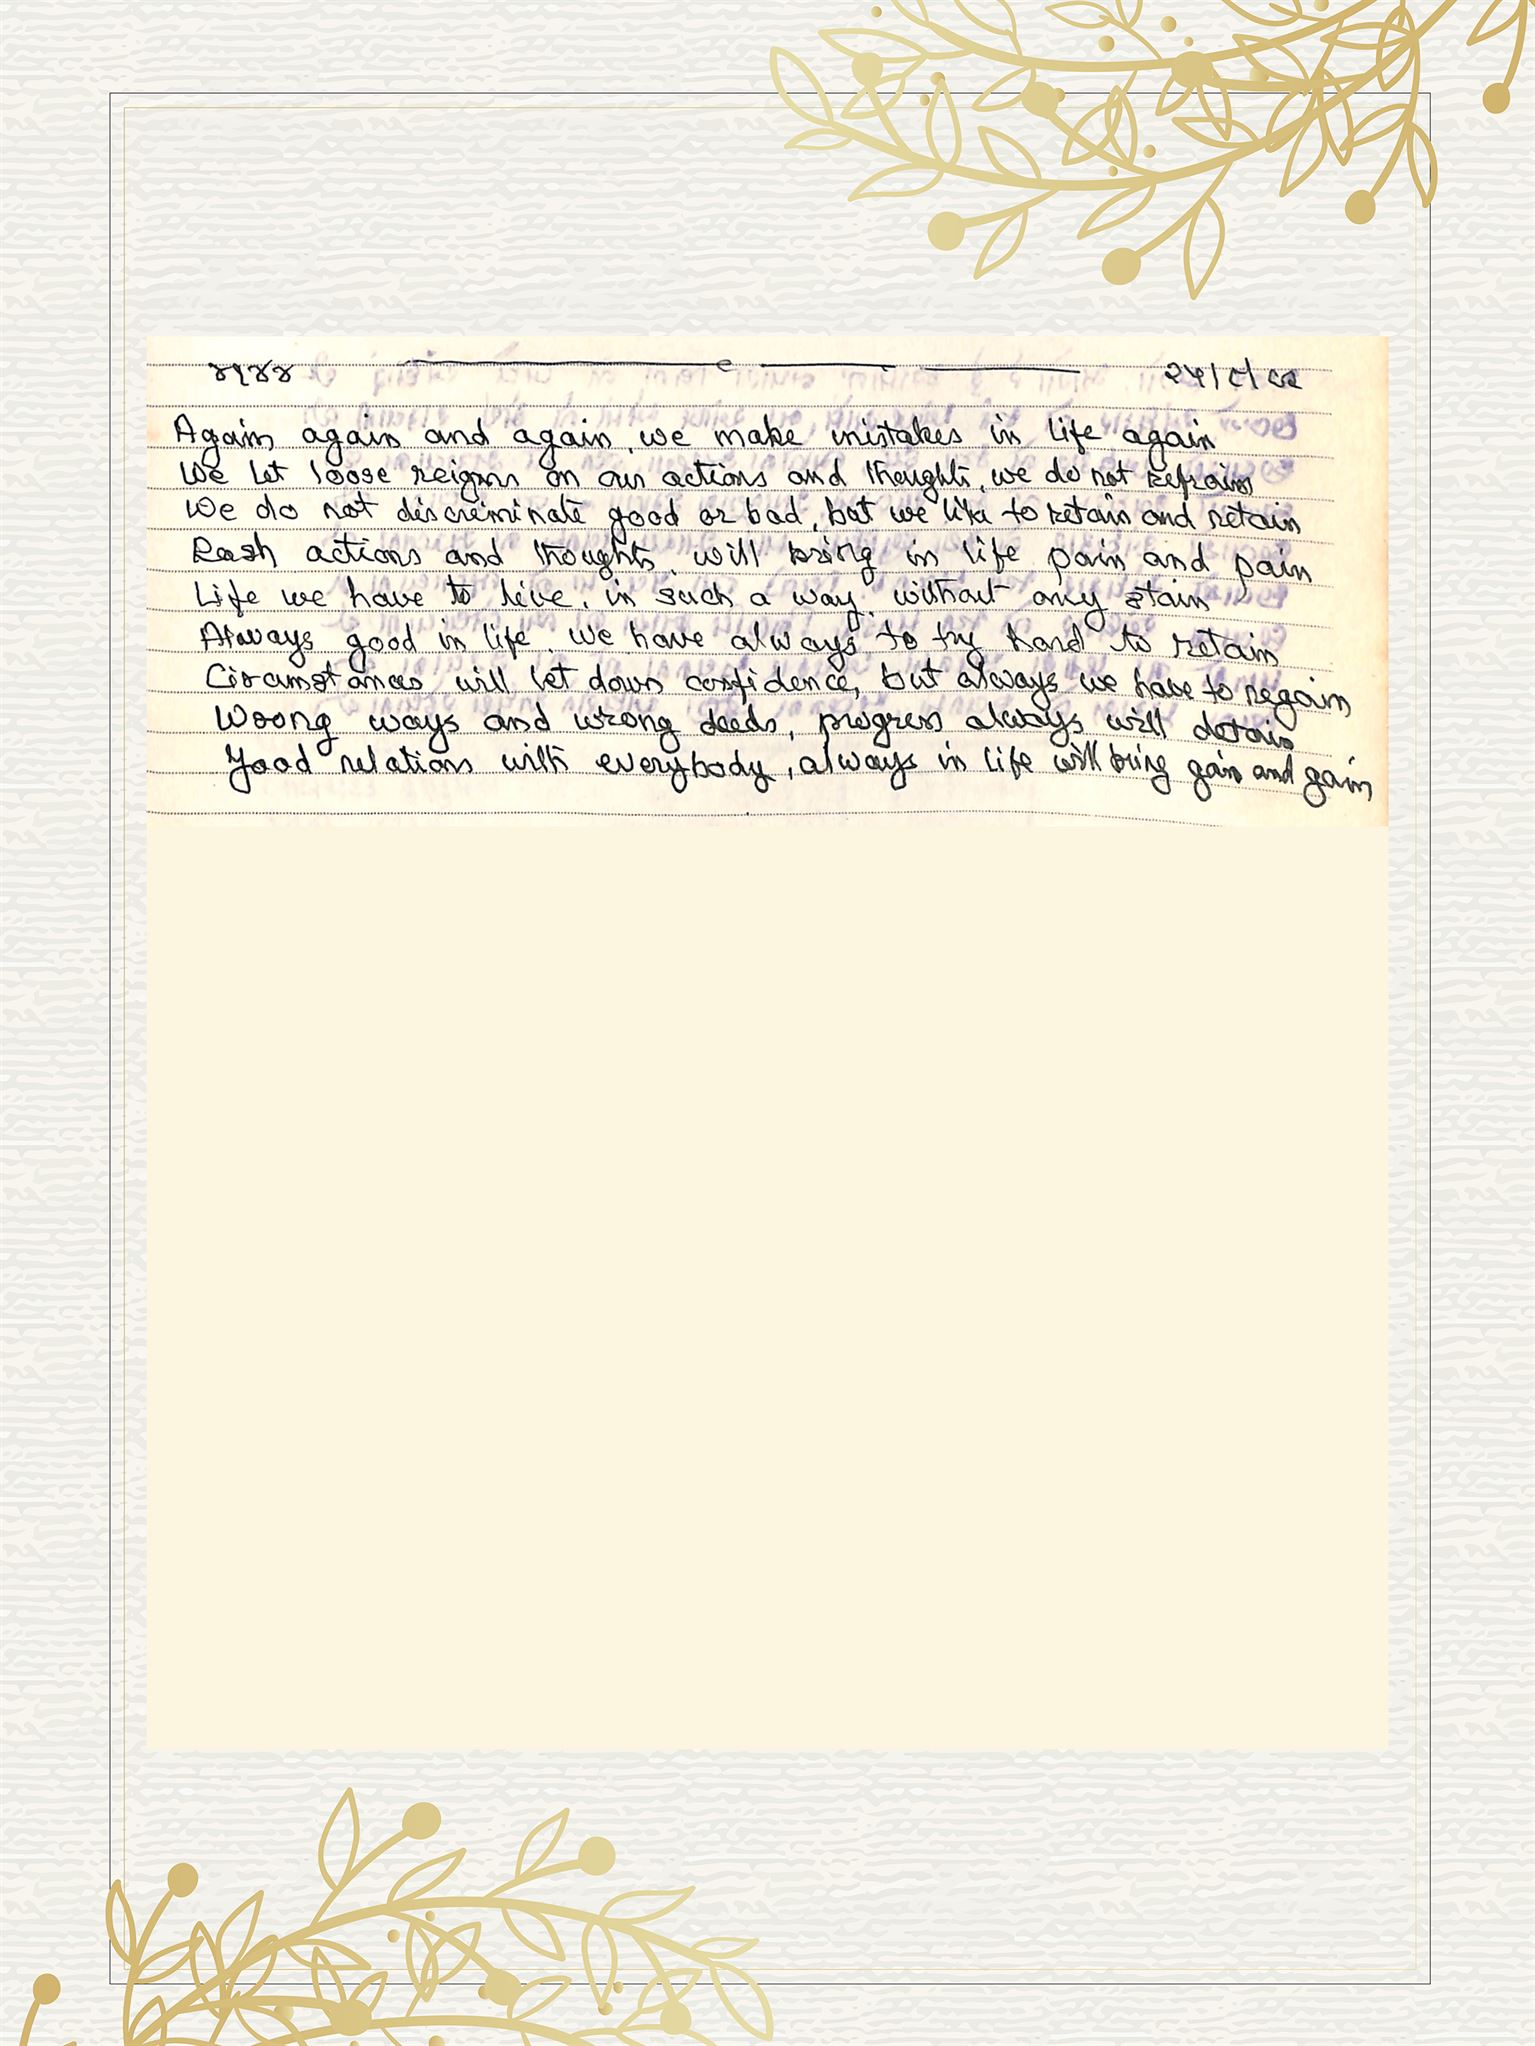 ૪૧૪૪
Again again and again, we make mistakes in life again
We let loose reigns on our actions and thoughts, we do not refrain
We do not discriminate good or bad, but we like to retain and retain
Rash actions and thoughts, will bring in life pain and pain
Life we have to live, in such a way, without any stain
Always good in life, we have always to try hard to retain
Circumstances will let down confidence, but always we have to regain
Wrong ways and wrong deeds, progress always will detain
Good relations with everybody, always in life will bring gain and gain